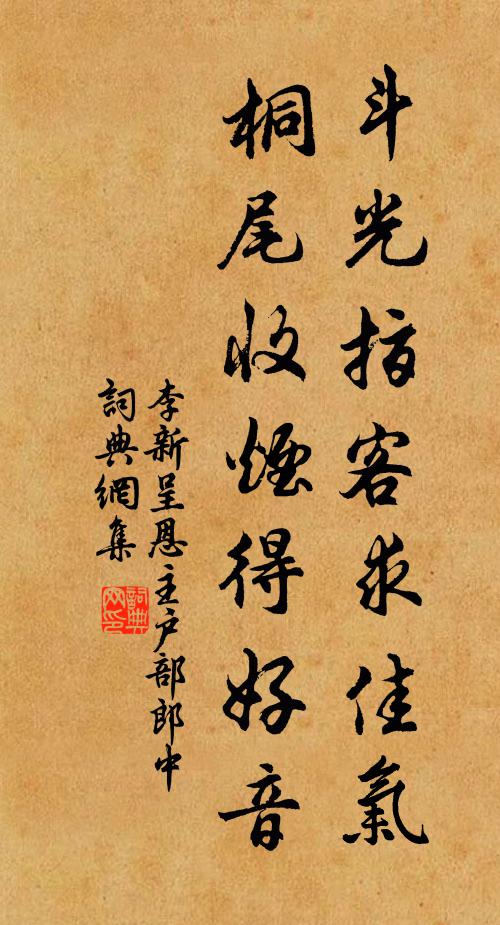 斗光指客求佳氣
桐尾收煙得好音
李新呈恩主户部郎中
詞典網集
詞典網印